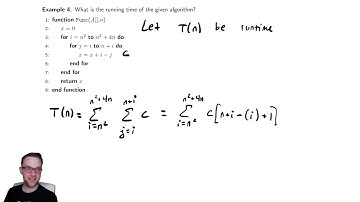 Example 4. What is the running time of the given algorithm?
1: function Func(A[],n)
2: x = 0
3: for i = n² to n² + 4n do
4: for j = i to n + i do
5: x = x + i − j
6: end for
7: end for
8: return x
9: end function
Let T(n) be runtime
c
T(n) = ∑_{i=n²}^{n²+4n} ∑_{j=i}^{n+i} c = ∑_{i=n²}^{n²+4n} c[n+i-(i)+1]